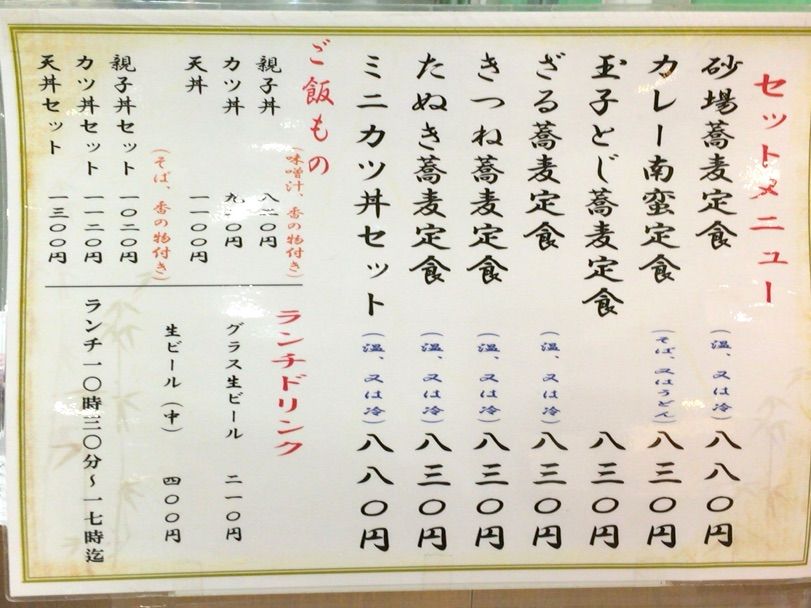 セットメニュー
砂場蕎麦定食 (温、又は冷) 八八〇円
カレー南蛮定食 (そば、又はうどん) 八三〇円
玉子とじ蕎麦定食 八三〇円
ざる蕎麦定食 (温、又は冷) 八三〇円
きつね蕎麦定食 (温、又は冷) 八三〇円
たぬき蕎麦定食 (温、又は冷) 八三〇円
ミニカツ丼セット (温、又は冷) 八八〇円
ご飯もの
(味噌汁、香の物付き)
親子丼 八二〇円
カツ丼
天丼 一一〇〇円
(そば、香の物付き)
親子丼セット 一〇二〇円
カツ丼セット 一一二〇円
天丼セット 一三〇〇円
ランチドリンク
グラス生ビール 二一〇円
生ビール(中) 四〇〇円
ランチ一〇時三〇分～一七時迄